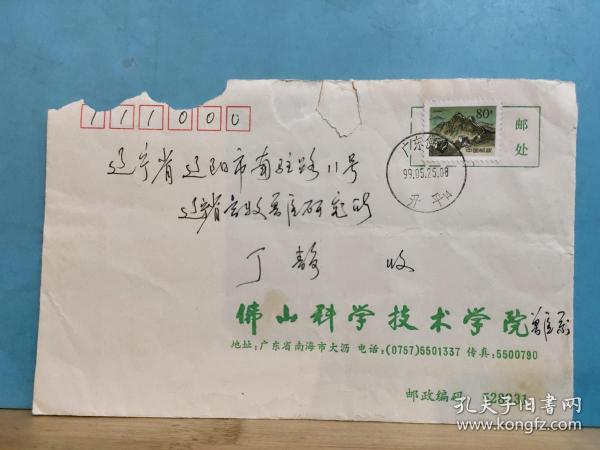 111000
80分
中国邮政
邮
处
99.05.25.08
辽宁省辽阳市南驻路11号
辽宁省畜牧兽医研究所
丁静 收
佛山科学技术学院 兽医系
地址:广东省南海市大沥 电话:(0757)5501337 传真:5500790
邮政编码 528231
孔夫子旧书网
www.kongfz.com